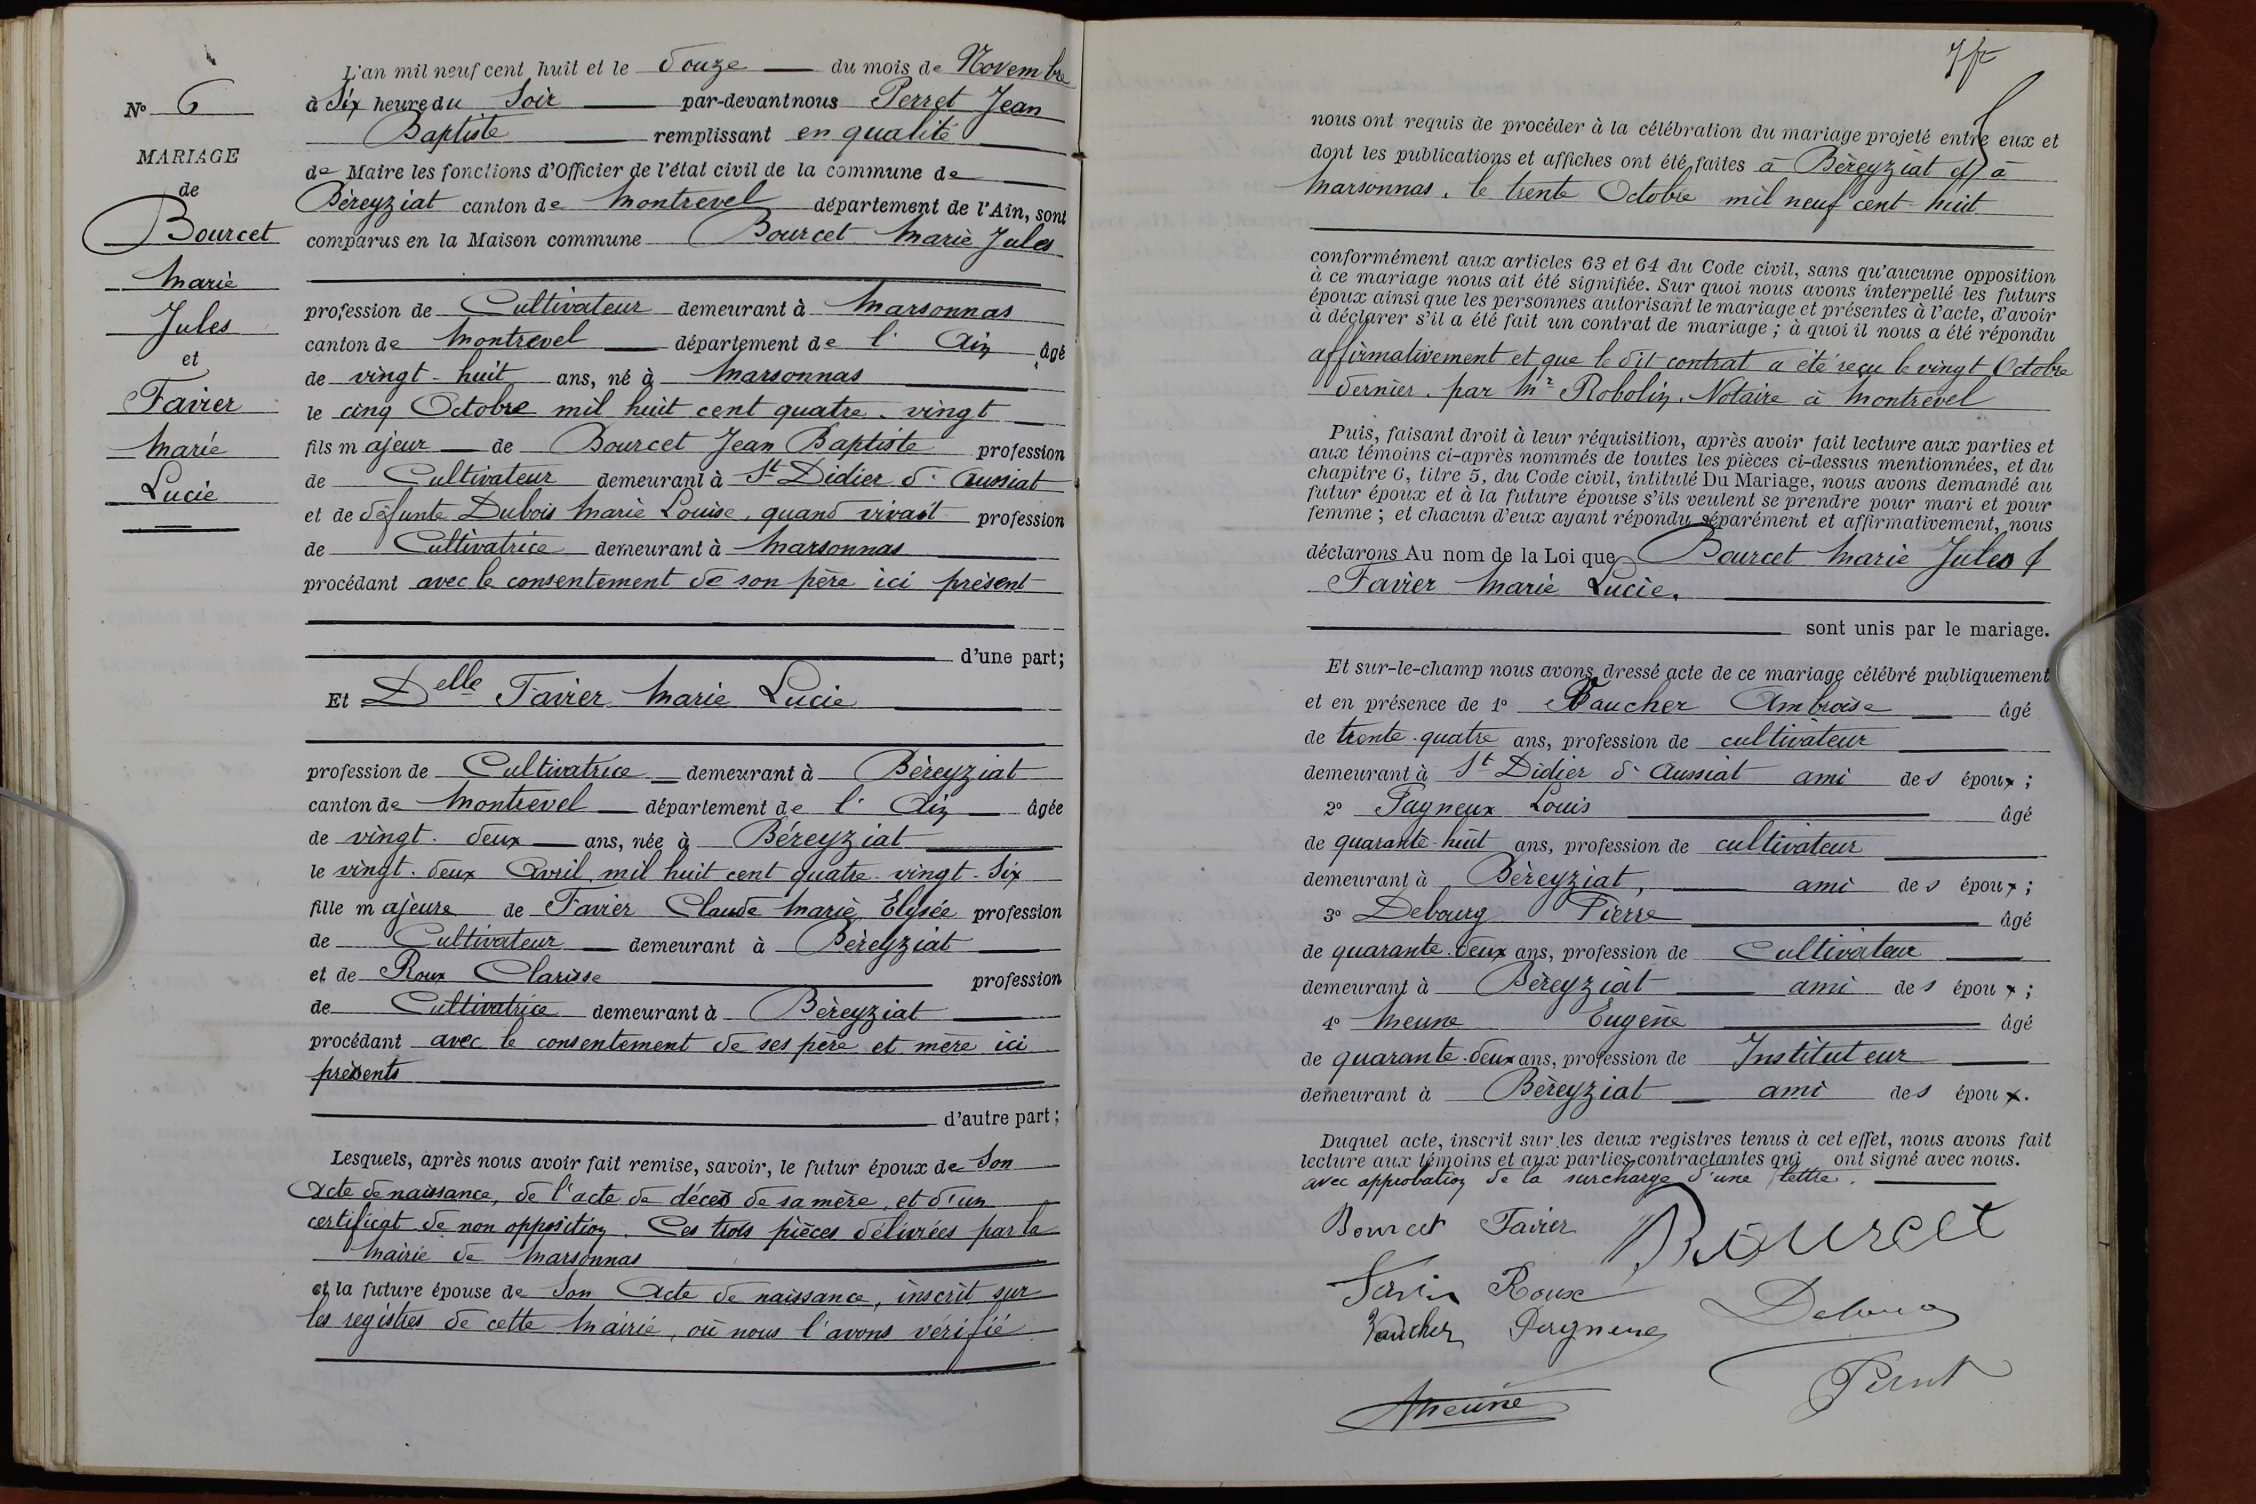 N° 6
MARIAGE
de
Bourcet
Marie
Jules
et
Favier
Marie
Lucie
L'an mil neuf cent huit et le douze du mois de Novembre
à Six heure du Soir par-devant nous Perret Jean
Baptiste remplissant en qualité
de Maire les fonctions d'Officier de l'état civil de la commune de
Béreyziat canton de Montrevel département de l'Ain, sont
comparus en la Maison commune Bourcet Marie Jules
profession de Cultivateur demeurant à Marsonnas
canton de Montrevel département de l'Ain âgé
de vingt-huit ans, né à Marsonnas
le cinq Octobre mil huit cent quatre-vingt
fils majeur de Bourcet Jean Baptiste profession
de Cultivateur demeurant à St Didier d'Aussiat
et de défunte Dubois Marie Louise, quand vivait profession
de Cultivatrice demeurant à Marsonnas
procédant avec le consentement de son père ici présent
d'une part;
Et Delle Favier Marie Lucie
profession de Cultivatrice demeurant à Béreyziat
canton de Montrevel département de l'Ain âgée
de vingt-deux ans, née à Béreyziat
le vingt-deux Avril mil huit cent quatre-vingt-six
fille majeure de Favier Claude Marie Elysée profession
de Cultivateur demeurant à Béreyziat
et de Roux Clarisse profession
de Cultivatrice demeurant à Béreyziat
procédant avec le consentement de ses père et mère ici
présents
d'autre part;
Lesquels, après nous avoir fait remise, savoir, le futur époux de Son
Acte de naissance, de l'acte de décès de sa mère, et d'un
certificat de non opposition. Ces trois pièces délivrées par la
Mairie de Marsonnas
et la future épouse de Son Acte de naissance, inscrit sur
les registres de cette Mairie, où nous l'avons vérifié
nous ont requis de procéder à la célébration du mariage projeté entre eux et
dont les publications et affiches ont été faites à Béreyziat et à
Marsonnas, le trente Octobre mil neuf cent huit
conformément aux articles 63 et 64 du Code civil, sans qu'aucune opposition
à ce mariage nous ait été signifiée. Sur quoi nous avons interpellé les futurs
époux ainsi que les personnes autorisant le mariage et présentes à l'acte, d'avoir
à déclarer s'il a été fait un contrat de mariage; à quoi il nous a été répondu
affirmativement et que le dit contrat a été reçu le vingt Octobre
dernier, par Mr Robolin, Notaire à Montrevel
Puis, faisant droit à leur réquisition, après avoir fait lecture aux parties et
aux témoins ci-après nommés de toutes les pièces ci-dessus mentionnées, et du
chapitre 6, titre 5, du Code civil, intitulé Du Mariage, nous avons demandé au
futur époux et à la future épouse s'ils veulent se prendre pour mari et pour
femme; et chacun d'eux ayant répondu séparément et affirmativement, nous
déclarons Au nom de la Loi que Bourcet Marie Jules &
Favier Marie Lucie.
sont unis par le mariage.
Et sur-le-champ nous avons dressé acte de ce mariage célébré publiquement
et en présence de 1° Vaucher Ambroise âgé
de trente-quatre ans, profession de cultivateur
demeurant à St Didier d'Aussiat ami des époux;
2° Pagneux Louis âgé
de quarante-huit ans, profession de cultivateur
demeurant à Béreyziat, ami des époux;
3° Debourg Pierre âgé
de quarante-deux ans, profession de Cultivateur
demeurant à Béreyziat ami des époux;
4° Meune Eugène âgé
de quarante-deux ans, profession de Instituteur
demeurant à Béreyziat ami des époux.
Duquel acte, inscrit sur les deux registres tenus à cet effet, nous avons fait
lecture aux témoins et aux parties contractantes qui ont signé avec nous.
avec approbation de la surcharge d'une lettre.
Bourcet Favier Bourcet
Favier Roux
Vaucher Pagneux Debourg
Perret
Meune